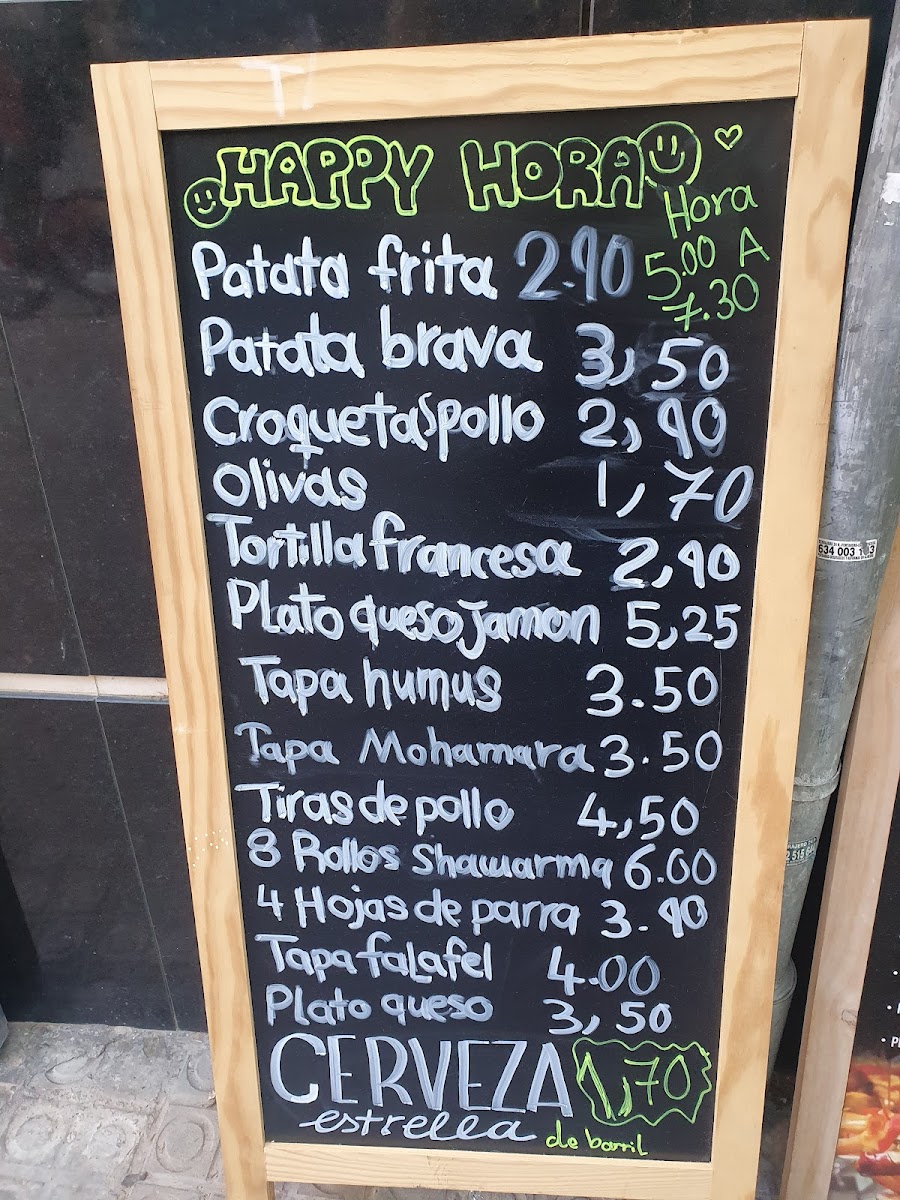 HAPPY HORA
Hora
5.00 A
7.30
Patata frita 2.90
Patata brava 3,50
Croquetas pollo 2,90
Olivas 1,70
Tortilla francesa 2,90
Plato queso jamon 5,25
Tapa humus 3.50
Tapa Mohamara 3.50
Tiras de pollo 4,50
8 Rollos Shawarma 6.00
4 Hojas de parra 3.90
Tapa falafel 4.00
Plato queso 3,50
CERVEZA 1,70
estrella
de barril